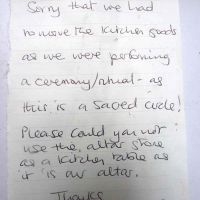 Sorry that we had
to move the kitchen goods
as we were performing
a ceremony/ritual - as
this is a sacred circle!
Please could you not
use the altar stone
as a kitchen table as
it is our altar.
Thanks